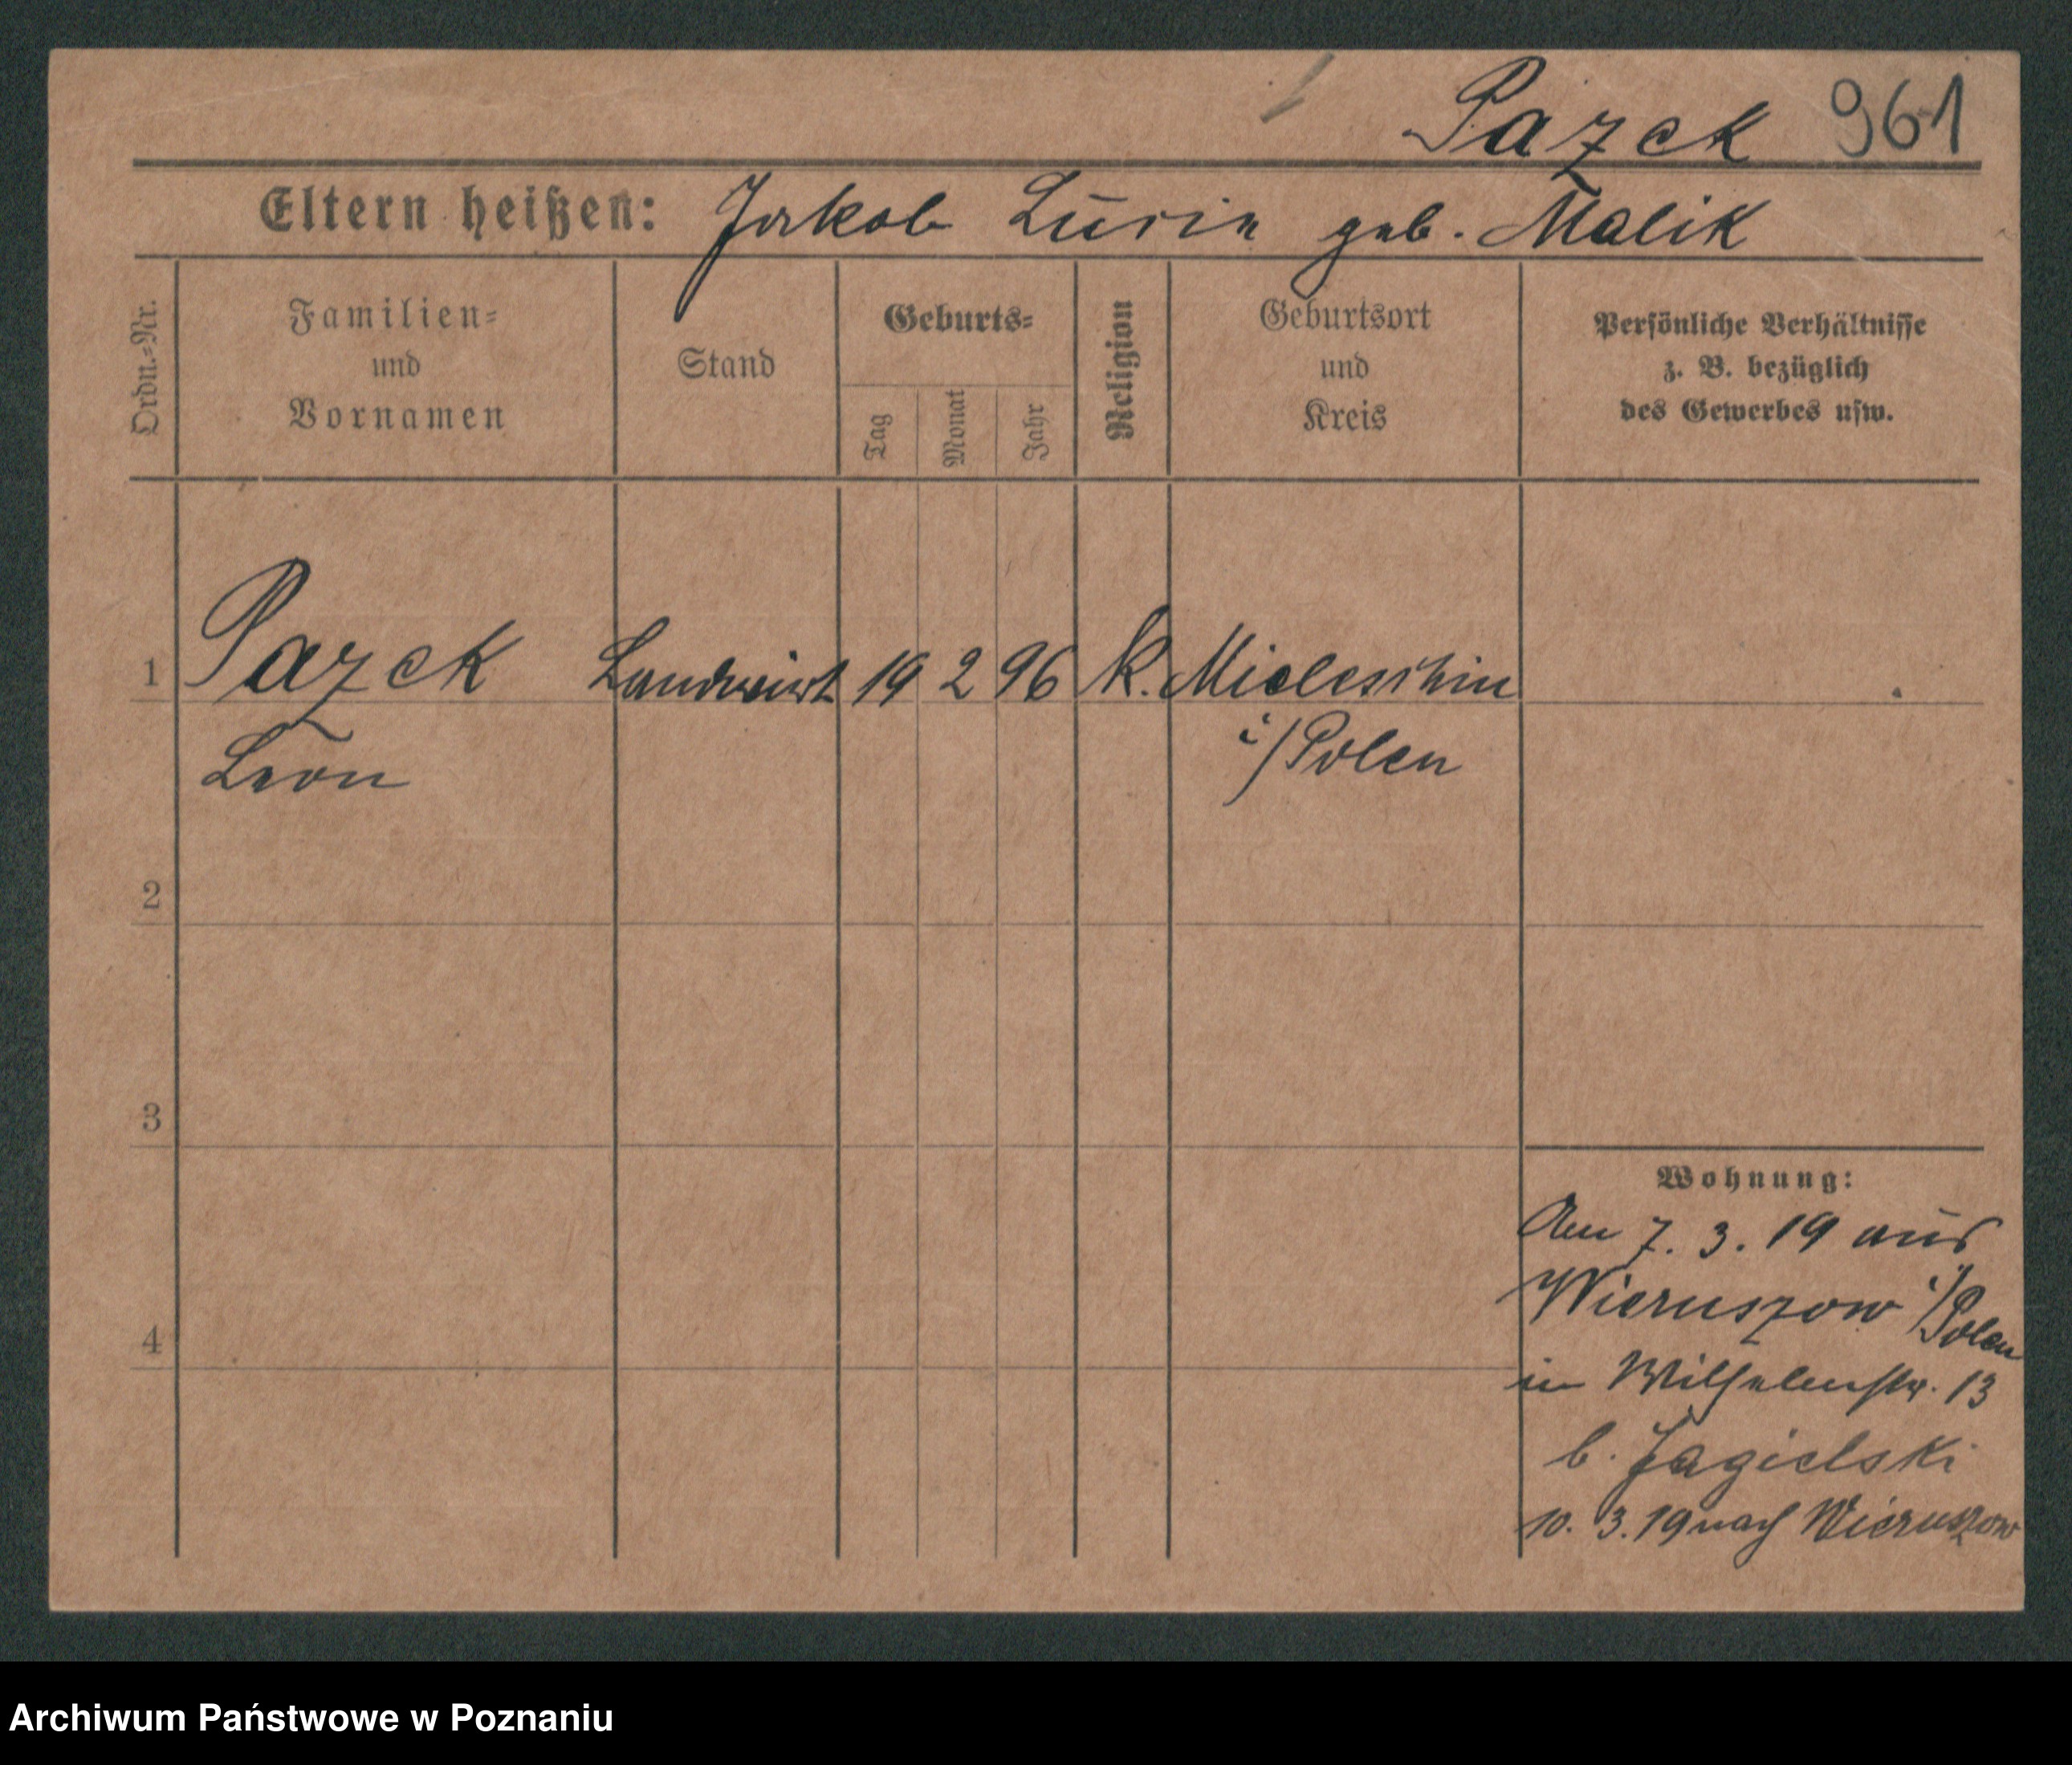 Pazek 961
Eltern heißen: Jakob Lucia geb. Malik
Ordn.-Nr.
Familien-
und
Vornamen
Stand
Geburts-
Tag
Monat
Jahr
Religion
Geburtsort
und
Kreis
Persönliche Verhältnisse
z. B. bezüglich
des Gewerbes usw.
1 Pazek Landwirt 19 2 96 k. Mieleschin
Leon i/Polen
2
3
4
Wohnung:
Am 7. 3. 19 aus
Wieruszow i/Polen
in Wilhelmstr. 13
b. Jagielski
10. 3. 19 nach Wieruszow
Archiwum Państwowe w Poznaniu